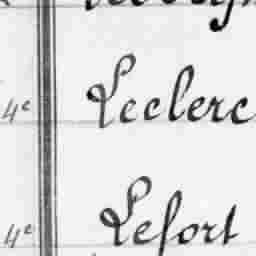 4e Leclerc
4e Lefort